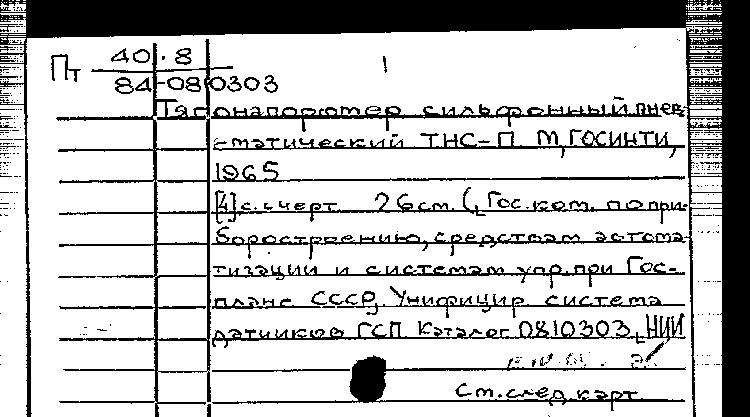 Пт 40.8
84-08 0303
Тягонапоромер сильфонный пнев-
матический ТНС-П М, ГОСИНТИ,
1965
[4] с. с черт 26 см. (Гос. ком. по при-
боростроению, средствам автома-
тизации и системам упр. при Гос-
плане СССР. Унифицир система
датчиков ГСП Каталог 0810303, НИИ
См. след. карт